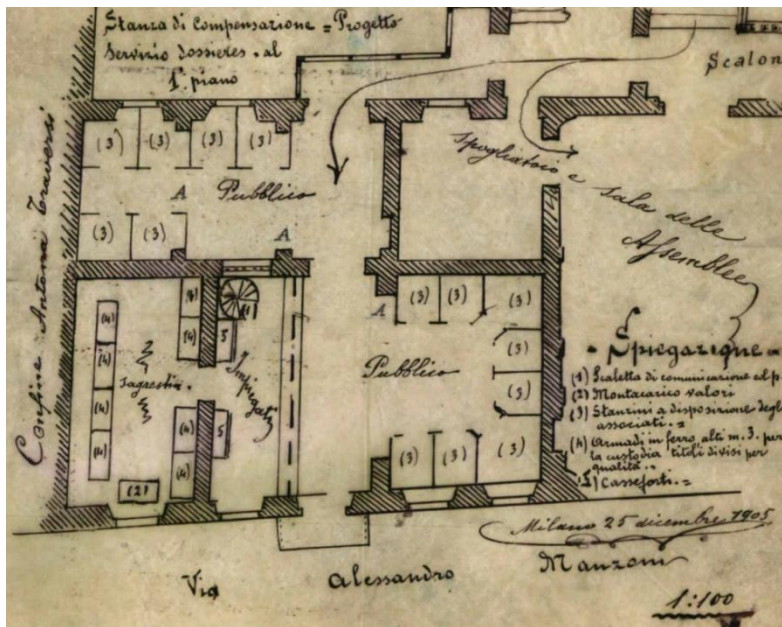 Stanza di Compensazione = Progetto
Servizio Dossieres . al
1º. piano
Scalon
(3) (3) (3) (3)
A Pubblico
(3) (3)
A
Spogliatoio e sala delle
Assemblee
Confine Antona Traversi
(4) (4) (4) (4)
Sagrestia.
(4) (4)
(4) (4)
(2)
(1)
5
5
Impiegati
A
(3) (3) (3)
Pubblico
(3)
(3)
(3) (3) (3)
- Spiegazione =
(1) Scaletta di comunicazione col p
(2) Montacarico valori
(3) Stanzini a disposizione degl
associati. =
(4) Armadi in ferro, alti m. 3. per
la custodia titoli divisi per
qualità. =
(5) Casseforti. =
Milano 25 dicembre 1905
Via Alessandro Manzoni
1:100